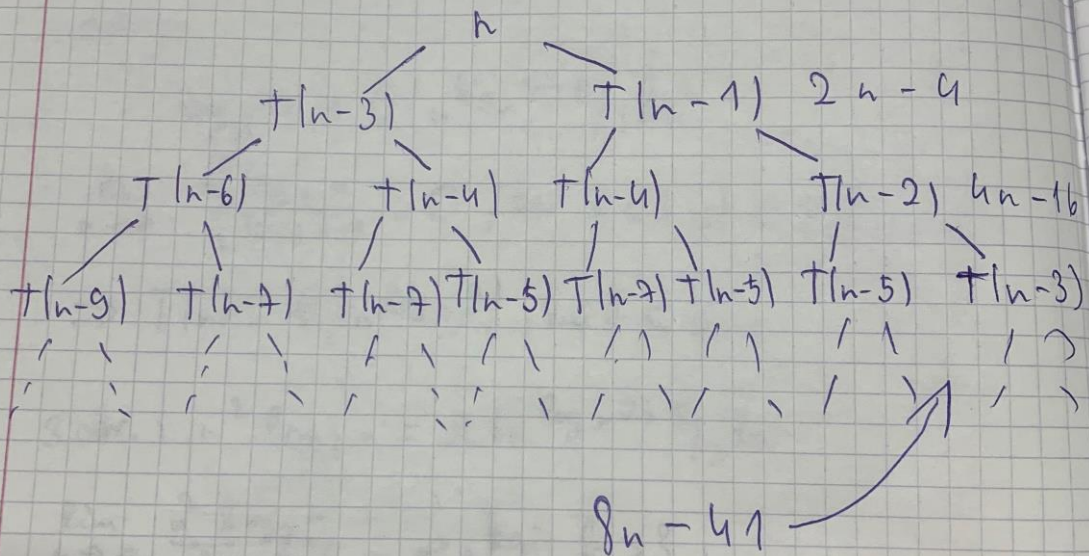 n
T(n-3) T(n-1) 2n-4
T(n-6) T(n-4) T(n-4) T(n-2) 4n-16
T(n-9) T(n-7) T(n-7) T(n-5) T(n-7) T(n-5) T(n-5) T(n-3)
8n-41